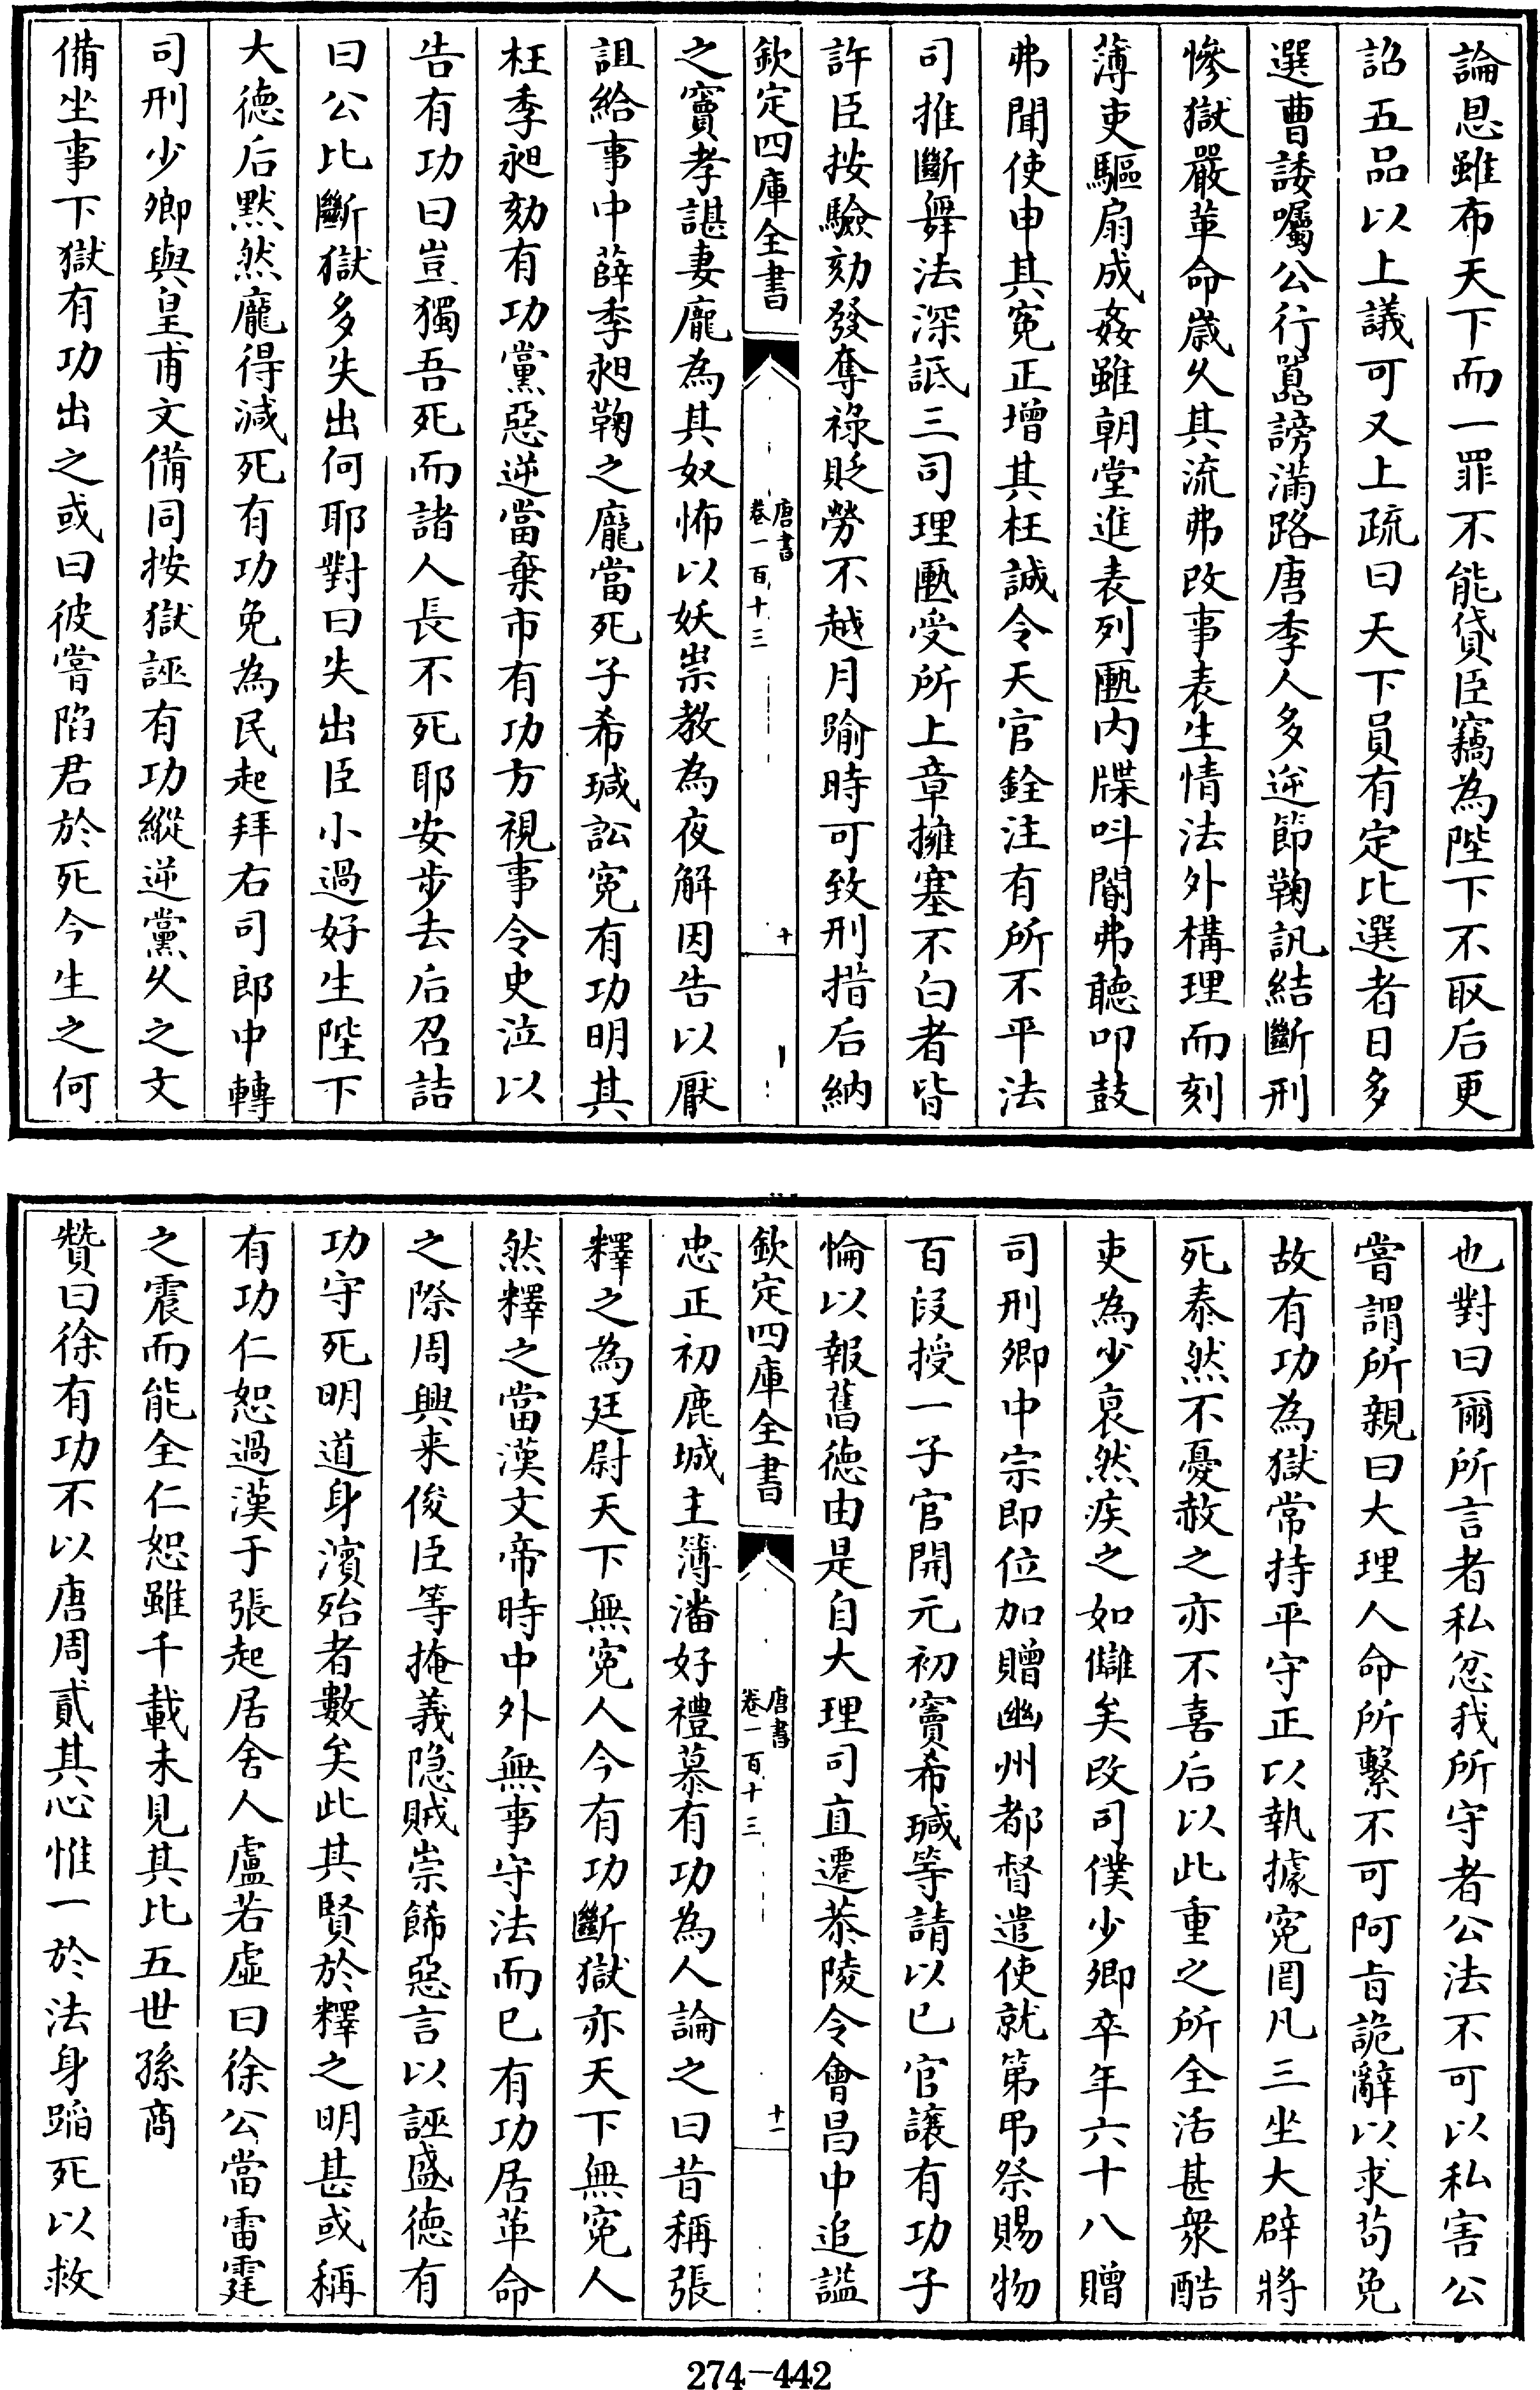 論恩雖布天下而一罪不能貸臣竊為陛下不取后更
詔五品以上議可又上疏曰天下員有定比選者日多
選曹諉囑公行囂謗滿路唐季人多逆節鞠訊結斷刑
慘獄嚴革命歲久其流弗改事表生情法外構理而刻
薄吏驅扇成姦雖朝堂進表列匭內牒叫閽弗聽叩鼓
弗聞使申其寃正增其枉誠令天官銓注有所不平法
司推斷舞法深詆三司理匭受所上章擁塞不白者皆
許臣按驗劾發奪祿貶勞不越月踰時可致刑措后納
欽定四庫全書
唐書
卷一百十三
十
之竇孝諶妻龐為其奴怖以妖祟教為夜解因告以厭
詛給事中薛季昶鞠之龐當死子希瑊訟寃有功明其
枉季昶劾有功黨惡逆當棄市有功方視事令史泣以
告有功曰豈獨吾死而諸人長不死耶安步去后召詰
曰公比斷獄多失出何耶對曰失出臣小過好生陛下
大德后默然龐得減死有功免為民起拜右司郎中轉
司刑少卿與皇甫文備同按獄誣有功縱逆黨久之文
備坐事下獄有功出之或曰彼嘗陷君於死今生之何
也對曰爾所言者私忿我所守者公法不可以私害公
嘗謂所親曰大理人命所繫不可阿旨詭辭以求苟免
故有功為獄常持平守正以執據寃罔凡三坐大辟將
死泰然不憂赦之亦不喜后以此重之所全活甚衆酷
吏為少衰然疾之如讎矣改司僕少卿卒年六十八贈
司刑卿中宗即位加贈幽州都督遣使就第弔祭賜物
百段授一子官開元初竇希瑊等請以己官讓有功子
惀以報舊德由是自大理司直遷恭陵令會昌中追諡
欽定四庫全書
唐書
卷一百十三
十一
忠正初鹿城主簿潘好禮慕有功為人論之曰昔稱張
釋之為廷尉天下無寃人今有功斷獄亦天下無寃人
然釋之當漢文帝時中外無事守法而已有功居革命
之際周興来俊臣等掩義隱賊崇飾惡言以誣盛德有
功守死明道身濱殆者數矣此其賢於釋之明甚或稱
有功仁恕過漢于張起居舍人盧若虛曰徐公當雷霆
之震而能全仁恕雖千載未見其比五世孫商
贊曰徐有功不以唐周貳其心惟一於法身蹈死以救
274-442